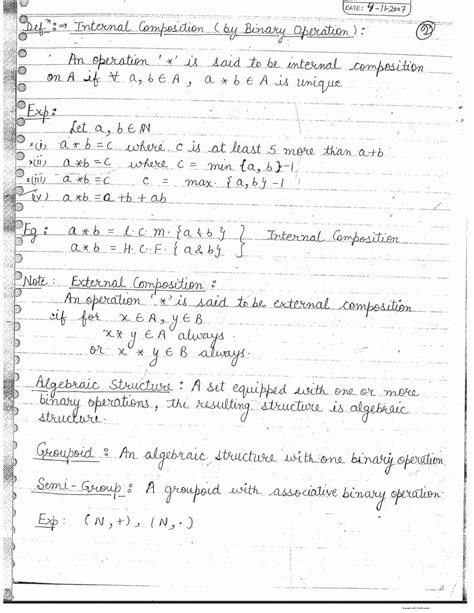 DATE: 4-11-2007
(2)
Defⁿ: → Internal Composition (by Binary Operation):
An operation '*' is said to be internal composition
on A if ∀ a, b ∈ A, a * b ∈ A is unique
Exp:
Let a, b ∈ N
×(i) a * b = c where c is at least 5 more than a+b
×(ii) a * b = c where c = min {a, b} -1
×(iii) a * b = c c = max. {a, b} -1
(iv) a * b = a + b + ab
Eg: a * b = l.c.m. {a & b} } Internal Composition
a * b = H.C.F. {a & b}
Note: External Composition:
An operation '*' is said to be external composition
if for x ∈ A, y ∈ B
x * y ∈ A always
or x * y ∈ B always.
Algebraic Structure: A set equipped with one or more
binary operations, the resulting structure is algebraic
structure.
Groupoid: An algebraic structure with one binary operation
Semi-Group: A groupoid with associative binary operation
Exp: (N,+), (N,·)